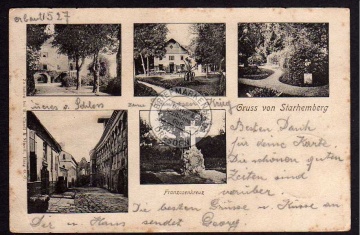 erbaut 1527
Inneres v. Schloss
Krieg
Gruss von Starhemberg
Franzosenkreuz
Besten Dank
für deine Karte
Die schönen guten
Zeiten sind
vorüber.
Die besten Grüsse u. Küsse an
Dir u. sendet Georg